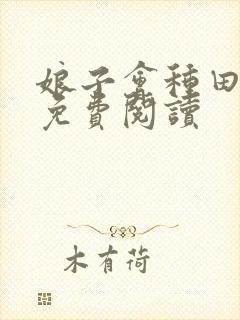 娘子會種田
免費閱讀
木有荷